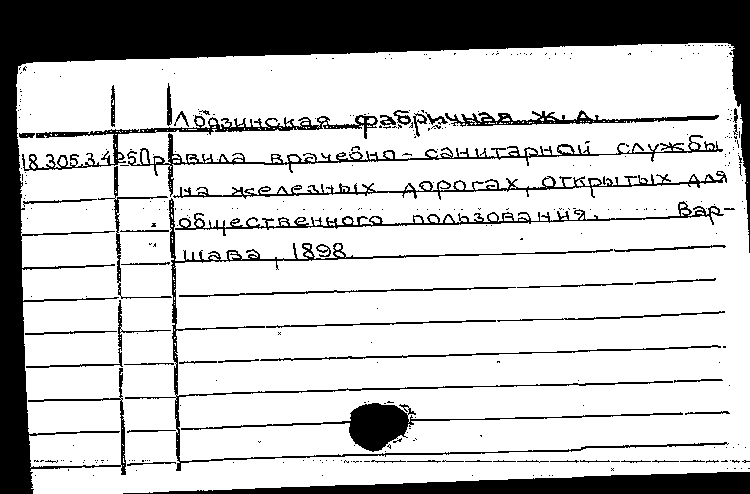 Лодзинская фабричная ж. д.
18.305.3.495 Правила врачебно-санитарной службы
на железных дорогах, открытых для
общественного пользования. Вар-
шава, 1898.